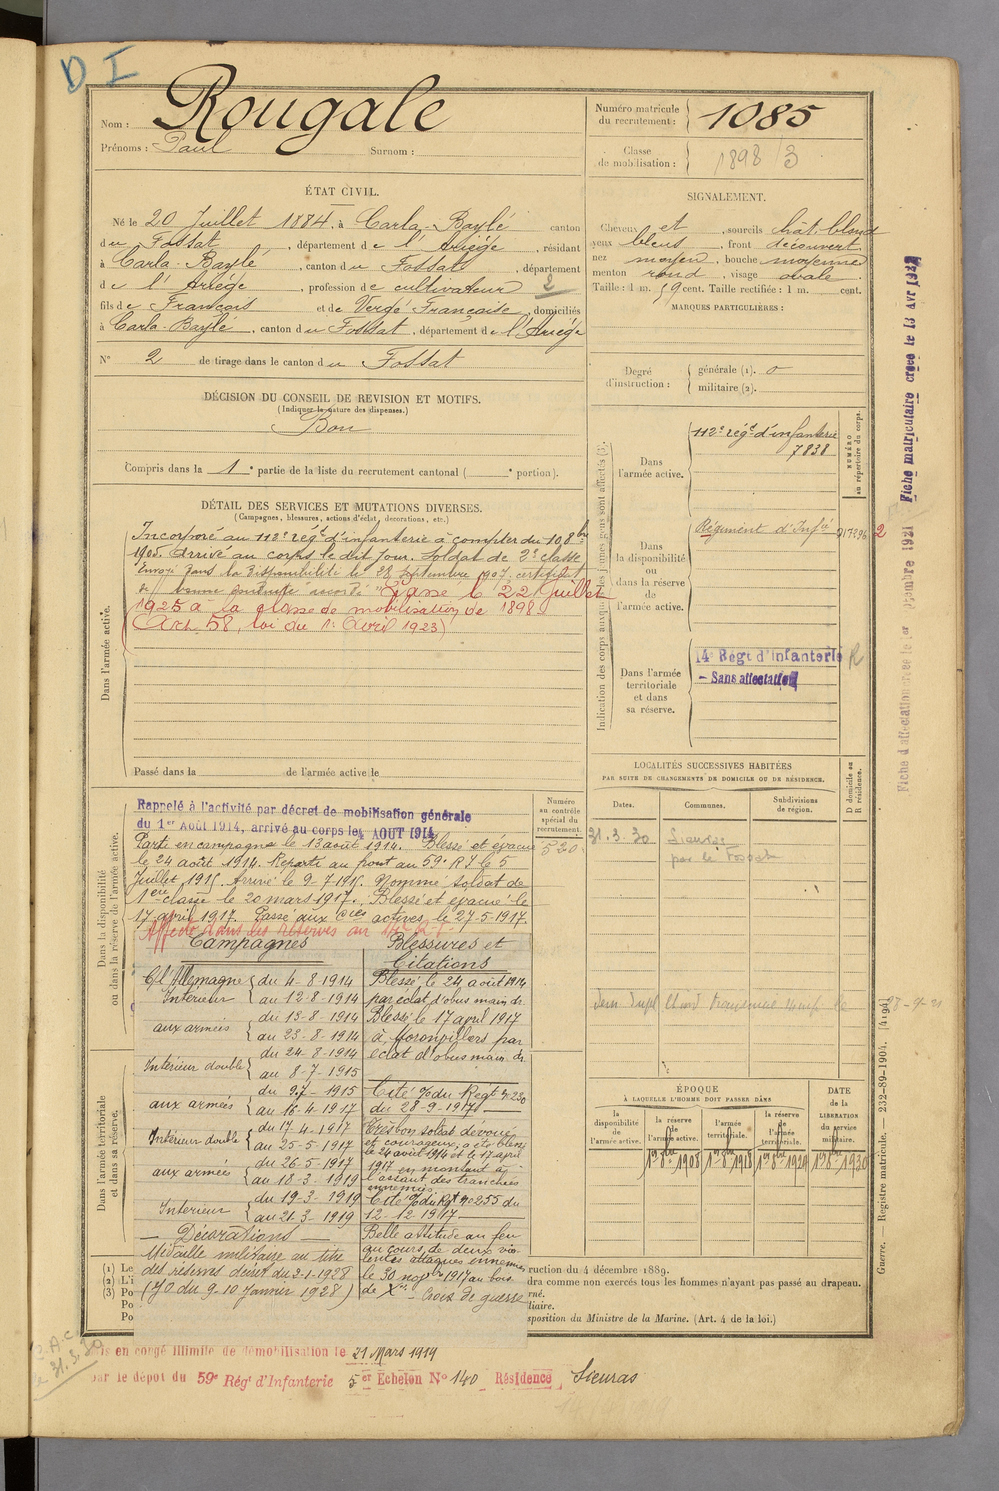 D I
Nom : Rougale
Prénoms : Paul Surnom :
ÉTAT CIVIL.
Né le 20 Juillet 1884, à Carla-Baylé canton
du Fossat, département de l'Ariège, résidant
à Carla-Baylé, canton du Fossat, département
de l'Ariège, profession de cultivateur 2
fils de François et de Vergé Françoise, domiciliés
à Carla-Baylé, canton du Fossat, département de l'Ariège
N° 2 de tirage dans le canton du Fossat
DÉCISION DU CONSEIL DE REVISION ET MOTIFS.
(Indiquer la nature des dispenses.)
Bon
Compris dans la 1e partie de la liste du recrutement cantonal ( e portion).
DÉTAIL DES SERVICES ET MUTATIONS DIVERSES.
(Campagnes, blessures, actions d'éclat, décorations, etc.)
Dans l'armée active.
Incorporé au 112e régt d'infanterie à compter du 10 8bre
1905. Arrivé au corps le dit jour. Soldat de 2e classe
Envoyé dans la disponibilité le 28 septembre 1907, certificat
de bonne conduite accordé. Passé le 22 Juillet
1925 à la classe de mobilisation de 1898
(Art. 58, loi du 1er Avril 1923)
Passé dans la de l'armée active le
Dans la disponibilité
ou dans la réserve de l'armée active.
Rappelé à l'activité par décret de mobilisation générale
du 1er Août 1914, arrivé au corps le 4 AOUT 1914
Parti en campagne le 13 août 1914. Blessé et évacué
le 24 août 1914. Reparti au front au 59e RI le 5
Juillet 1915. Arrivé le 9-7-1915. Nommé soldat de
1ère classe le 20 mars 1917. Blessé et évacué le
17 avril 1917. Passé aux Cies actives le 27-5-1917.
Affecté dans les réserves au
Numéro
au contrôle
spécial du
recrutement.
520
Campagnes
C/l'Allemagne
Intérieur { du 4-8-1914
au 12-8-1914
aux armées { du 13-8-1914
au 23-8-1914
Intérieur double { du 24-8-1914
au 8-7-1915
aux armées { du 9-7-1915
au 16-4-1917
Intérieur double { du 17-4-1917
au 25-5-1917
aux armées { du 26-5-1917
au 18-3-1919
Intérieur { du 19-3-1919
au 21-3-1919
— Décorations —
Médaille militaire au titre
des réserves décret du 3-1-1928
(JO du 9-10 Janvier 1928)
Blessures et
Citations
Blessé le 24 août 1914
par éclat d'obus main dr.
Blessé le 17 april 1917
à Moronvillers par
éclat d'obus main dr.
Cité O/du Regt N° 230
du 28-9-1917
Très bon soldat dévoué
et courageux, a été blessé
le 24 août 1914 et le 17 april
1917 en montant à
l'assaut des tranchées
ennemies
Cité O/du Rgt N° 255 du
12-12-1917
Belle attitude au feu
au cours de deux vio-
lentes attaques ennemies
le 30 novbre 1917 au bois
de Croix de guerre
Dans l'armée territoriale
et dans sa réserve.
(1) Le
(2) L'i
(3) Po
Po
Po
ruction du 4 décembre 1889.
dra comme non exercés tous les hommes n'ayant pas passé au drapeau.
rné.
liaire.
sposition du Ministre de la Marine. (Art. 4 de la loi.)
is en congé illimité de démobilisation le 21 Mars 1919
par le dépôt du 59e Régt d'Infanterie 5er Echelon N° 140 Résidence Sieuras
le 31.3.30
Numéro matricule
du recrutement : 1085
Classe
de mobilisation : 1898/3
SIGNALEMENT.
Cheveux et, sourcils chât. blond
yeux bleus, front découvert
nez moyen, bouche moyenne
menton rond, visage ovale
Taille : 1 m. 59 cent. Taille rectifiée : 1 m. cent.
MARQUES PARTICULIÈRES :
Degré
d'instruction :
générale (1). 0
militaire (2).
Indication des corps auxquels les jeunes gens sont affectés (3).
NUMÉRO
au répertoire du corps.
Dans
l'armée active.
112e régt d'infanterie
7838
Dans
la disponibilité
ou
dans la réserve
de
l'armée active.
Régiment d'Infie
2
Dans l'armée
territoriale
et dans
sa réserve.
14e Régt d'Infanterie R
– Sans affectation
LOCALITÉS SUCCESSIVES HABITÉES
PAR SUITE DE CHANGEMENTS DE DOMICILE OU DE RÉSIDENCE.
Dates. Communes. Subdivisions
de région.
D domicile ou
R résidence.
31.3.30 Sieuras
par le Fossat
27-9-21
ÉPOQUE
À LAQUELLE L'HOMME DOIT PASSER DANS
la
disponibilité
de
l'armée active.
la réserve
de
l'armée active.
l'armée
territoriale.
la réserve
de
l'armée
territoriale.
DATE
de la
LIBÉRATION
du service
militaire.
1er 8bre 1908 1er 8bre 1918 1er 8bre 1924 1er 8bre 1930
Guerre. — Registre matricule. — 232-89-1904. [4194]
Fiche matriculaire créée le 13 Avr 1932
Fiche d'affectation créée le 1er 1921